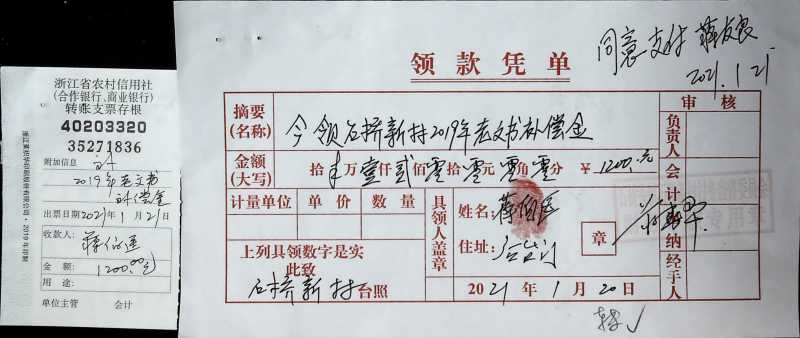 浙江省农村信用社
(合作银行、商业银行)
转账支票存根
40203320
35271836
附加信息
2019年老文书
补偿金
出票日期2021年1月21日
收款人:
蒋伯
金 额: 1200.00元
用 途:
单位主管 会计
同意支付 蒋友良
2021.1.21
领款凭单
摘要
(名称)
今领石桥新村2019年老文书补偿金
审 核
负责人
会计
出纳
经手人
金额
(大写)
拾 万壹仟贰佰零拾零元零角零分 ¥1200.元
计量单位 单 价 数 量
具领人盖章
姓名: 蒋伯
住址:
章
上列具领数字是实
此致
石桥新村台照
2021年1月20日